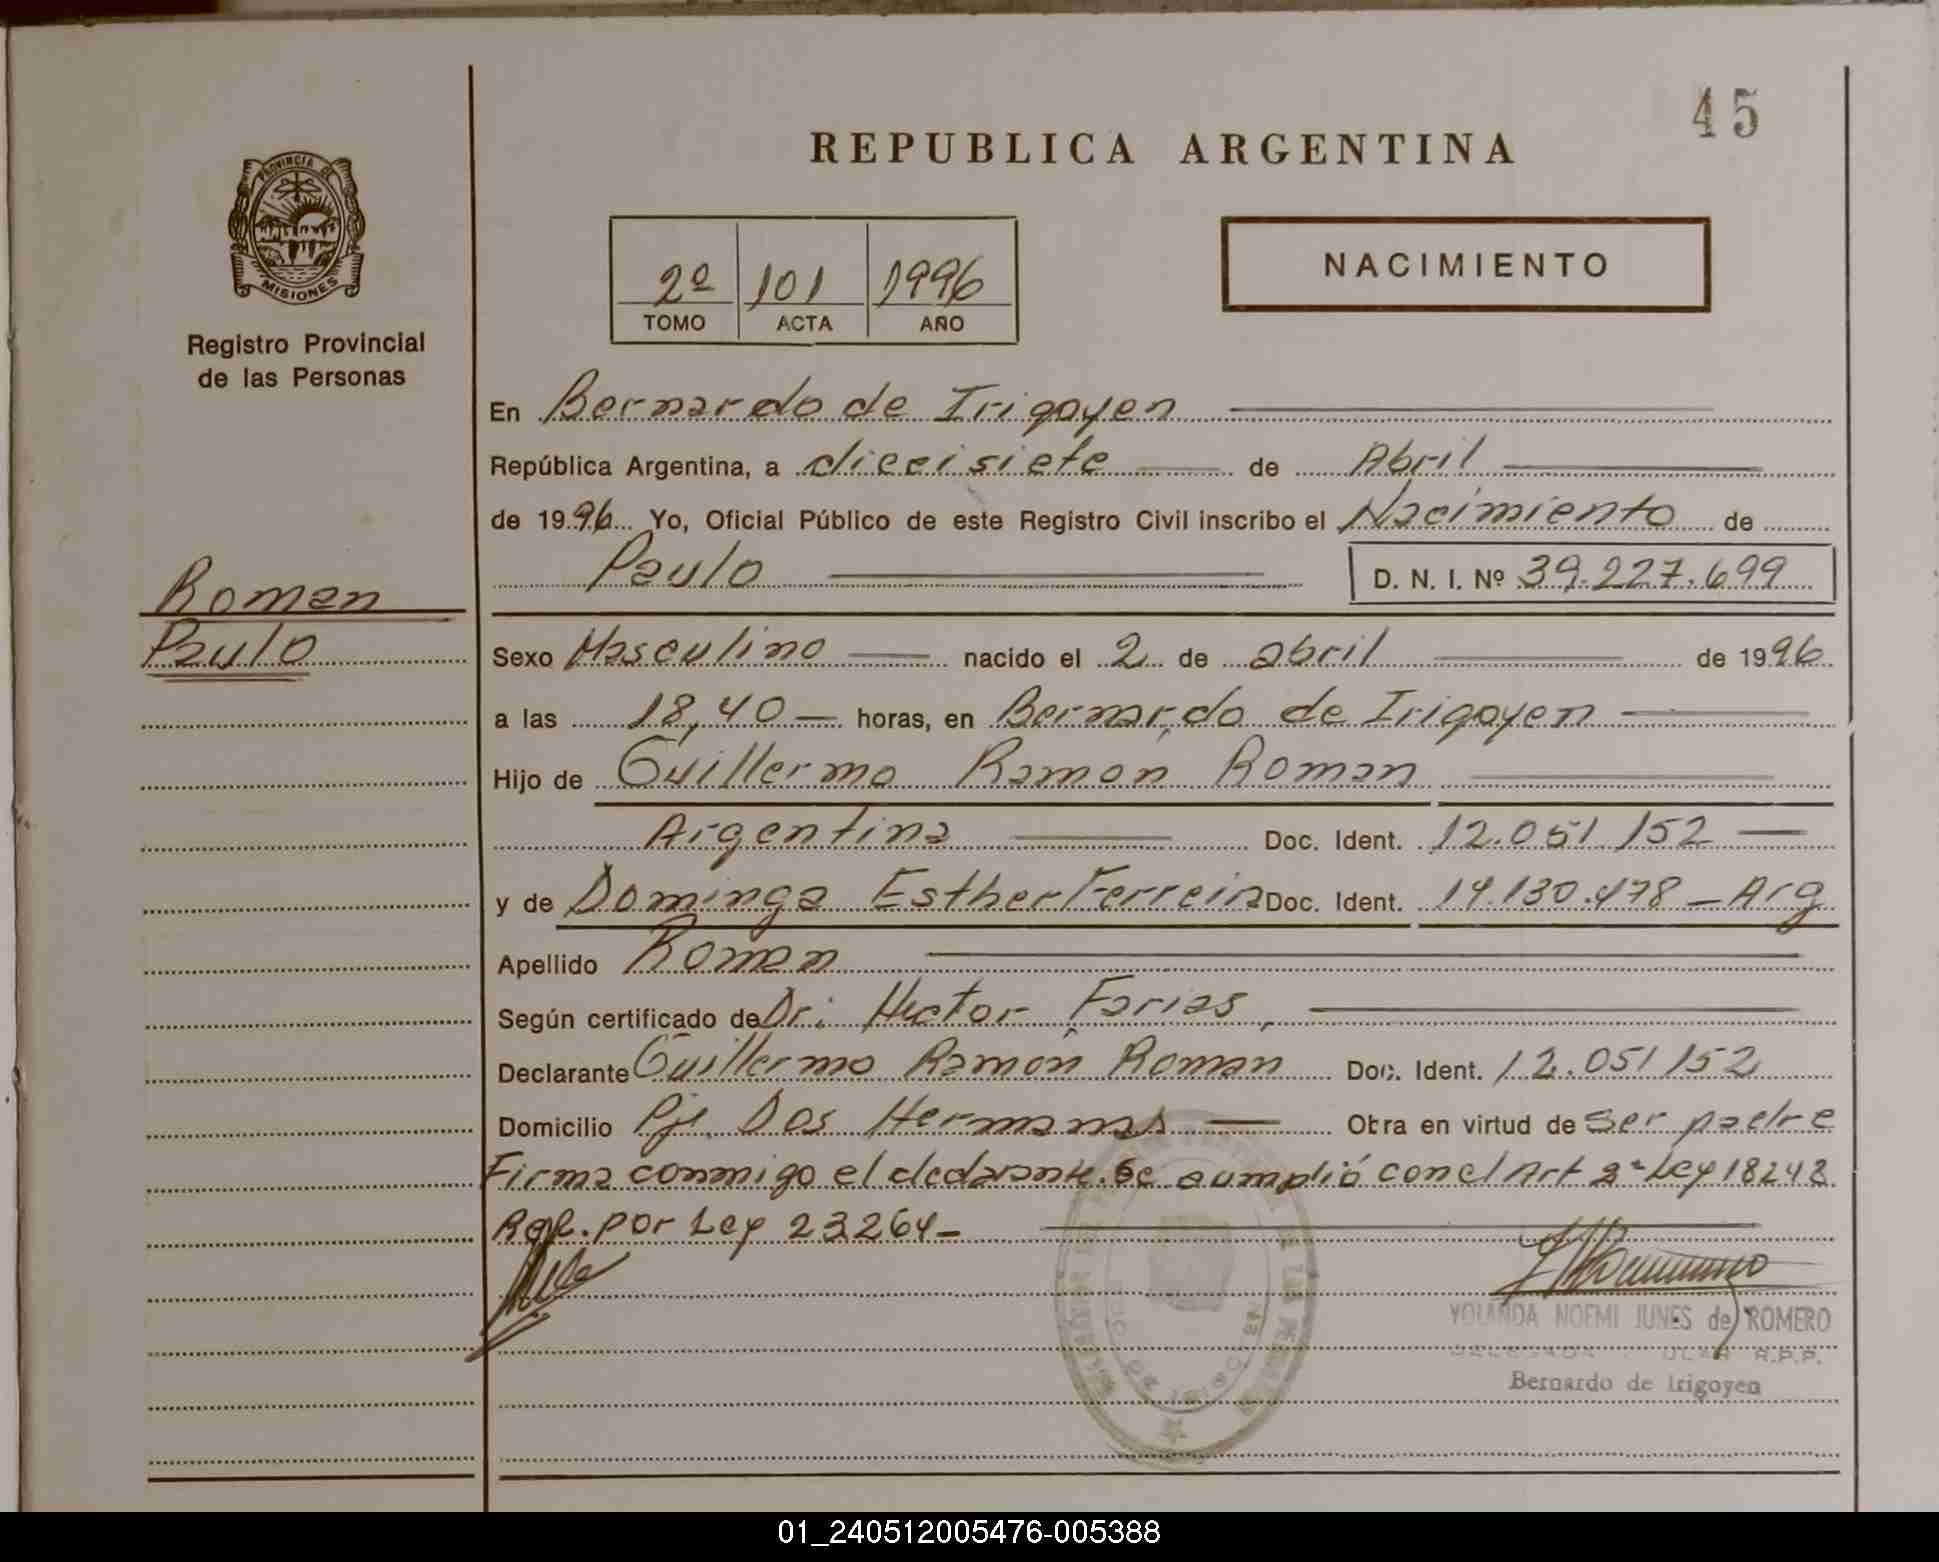 45
REPUBLICA ARGENTINA
PROVINCIA DE
MISIONES
Registro Provincial
de las Personas
2º 101 1996
TOMO ACTA AÑO
NACIMIENTO
En Bernardo de Irigoyen
República Argentina, a diecisiete de Abril
de 1996 Yo, Oficial Público de este Registro Civil inscribo el Nacimiento de
Paulo D. N. I. Nº 39.227.699
Roman
Paulo
Sexo Masculino nacido el 2 de abril de 1996
a las 18,40 horas, en Bernardo de Irigoyen
Hijo de Guillermo Ramón Roman
Argentina Doc. Ident. 12.051.152
y de Dominga Esther Ferreira Doc. Ident. 14.130.478 - Arg
Apellido Roman
Según certificado de Dr: Hector Farias,
Declarante Guillermo Ramón Roman Doc. Ident. 12.051152
Domicilio Pje. Dos Hermanas Obra en virtud de ser padre
Firma conmigo el declarante. Se cumplió con el Art 2º Ley 18248
por Ley 23264-
YOLANDA NOEMI JUNES de ROMERO
R.P.P.
Bernardo de Irigoyen
01_240512005476-005388